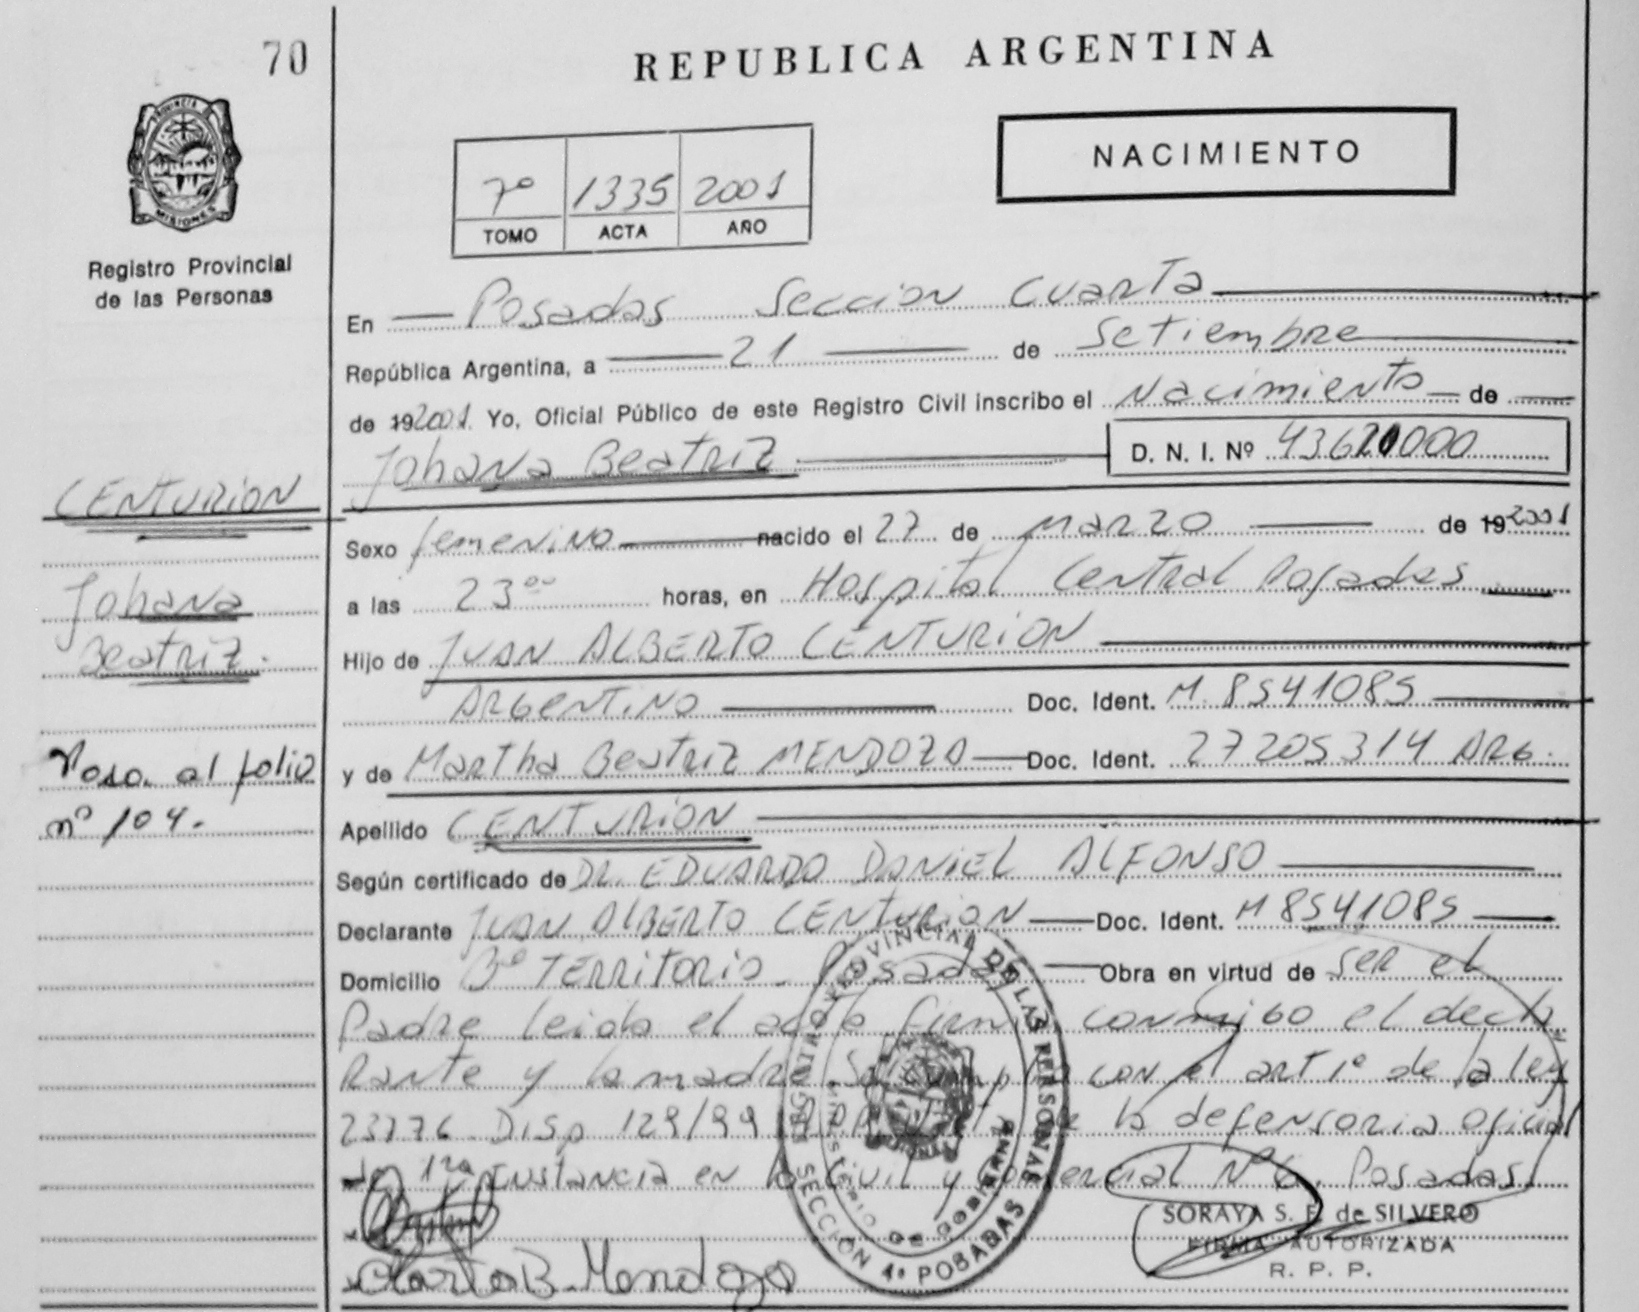 70
REPUBLICA ARGENTINA
PROVINCIA DE MISIONES
NACIMIENTO
7º 1335 2001
TOMO ACTA AÑO
Registro Provincial
de las Personas
En Posadas Seccion Cuarta
República Argentina, a 21 de Setiembre
de 192001. Yo, Oficial Público de este Registro Civil inscribo el Nacimiento de
Johana Beatriz D. N. I. Nº 43621000
CENTURION
Sexo femenino nacido el 27 de Marzo de 192001
Johana
Beatriz.
a las 23⁰⁰ horas, en Hospital Central Posadas
Hijo de JUAN ALBERTO CENTURION
ARGENTINO Doc. Ident. M. 8541085
Pasa al folio
nº 104.
y de Martha Beatriz MENDOZA Doc. Ident. 27205314 ARG.
Apellido CENTURION
Según certificado de DR. EDUARDO DANIEL ALFONSO
Declarante JUAN ALBERTO CENTURION Doc. Ident. M 8541085
Domicilio Bº TERRITORIO Posadas Obra en virtud de ser el
Padre leida el acta firma conmigo el decla
rante y la madre Se cumplio con el art 1º de la ley
23776 Disp 129/99 de la defensoria oficial
de 1ra instancia en lo civil y comercial Nº 6. Posadas.
REGISTRO PROVINCIAL DE LAS PERSONAS
MINISTERIO DE GOBIERNO
SECCIÓN 4ª POSADAS
SORAYA S. F. de SILVERO
FIRMA AUTORIZADA
R. P. P.
Marta B. Mendoza